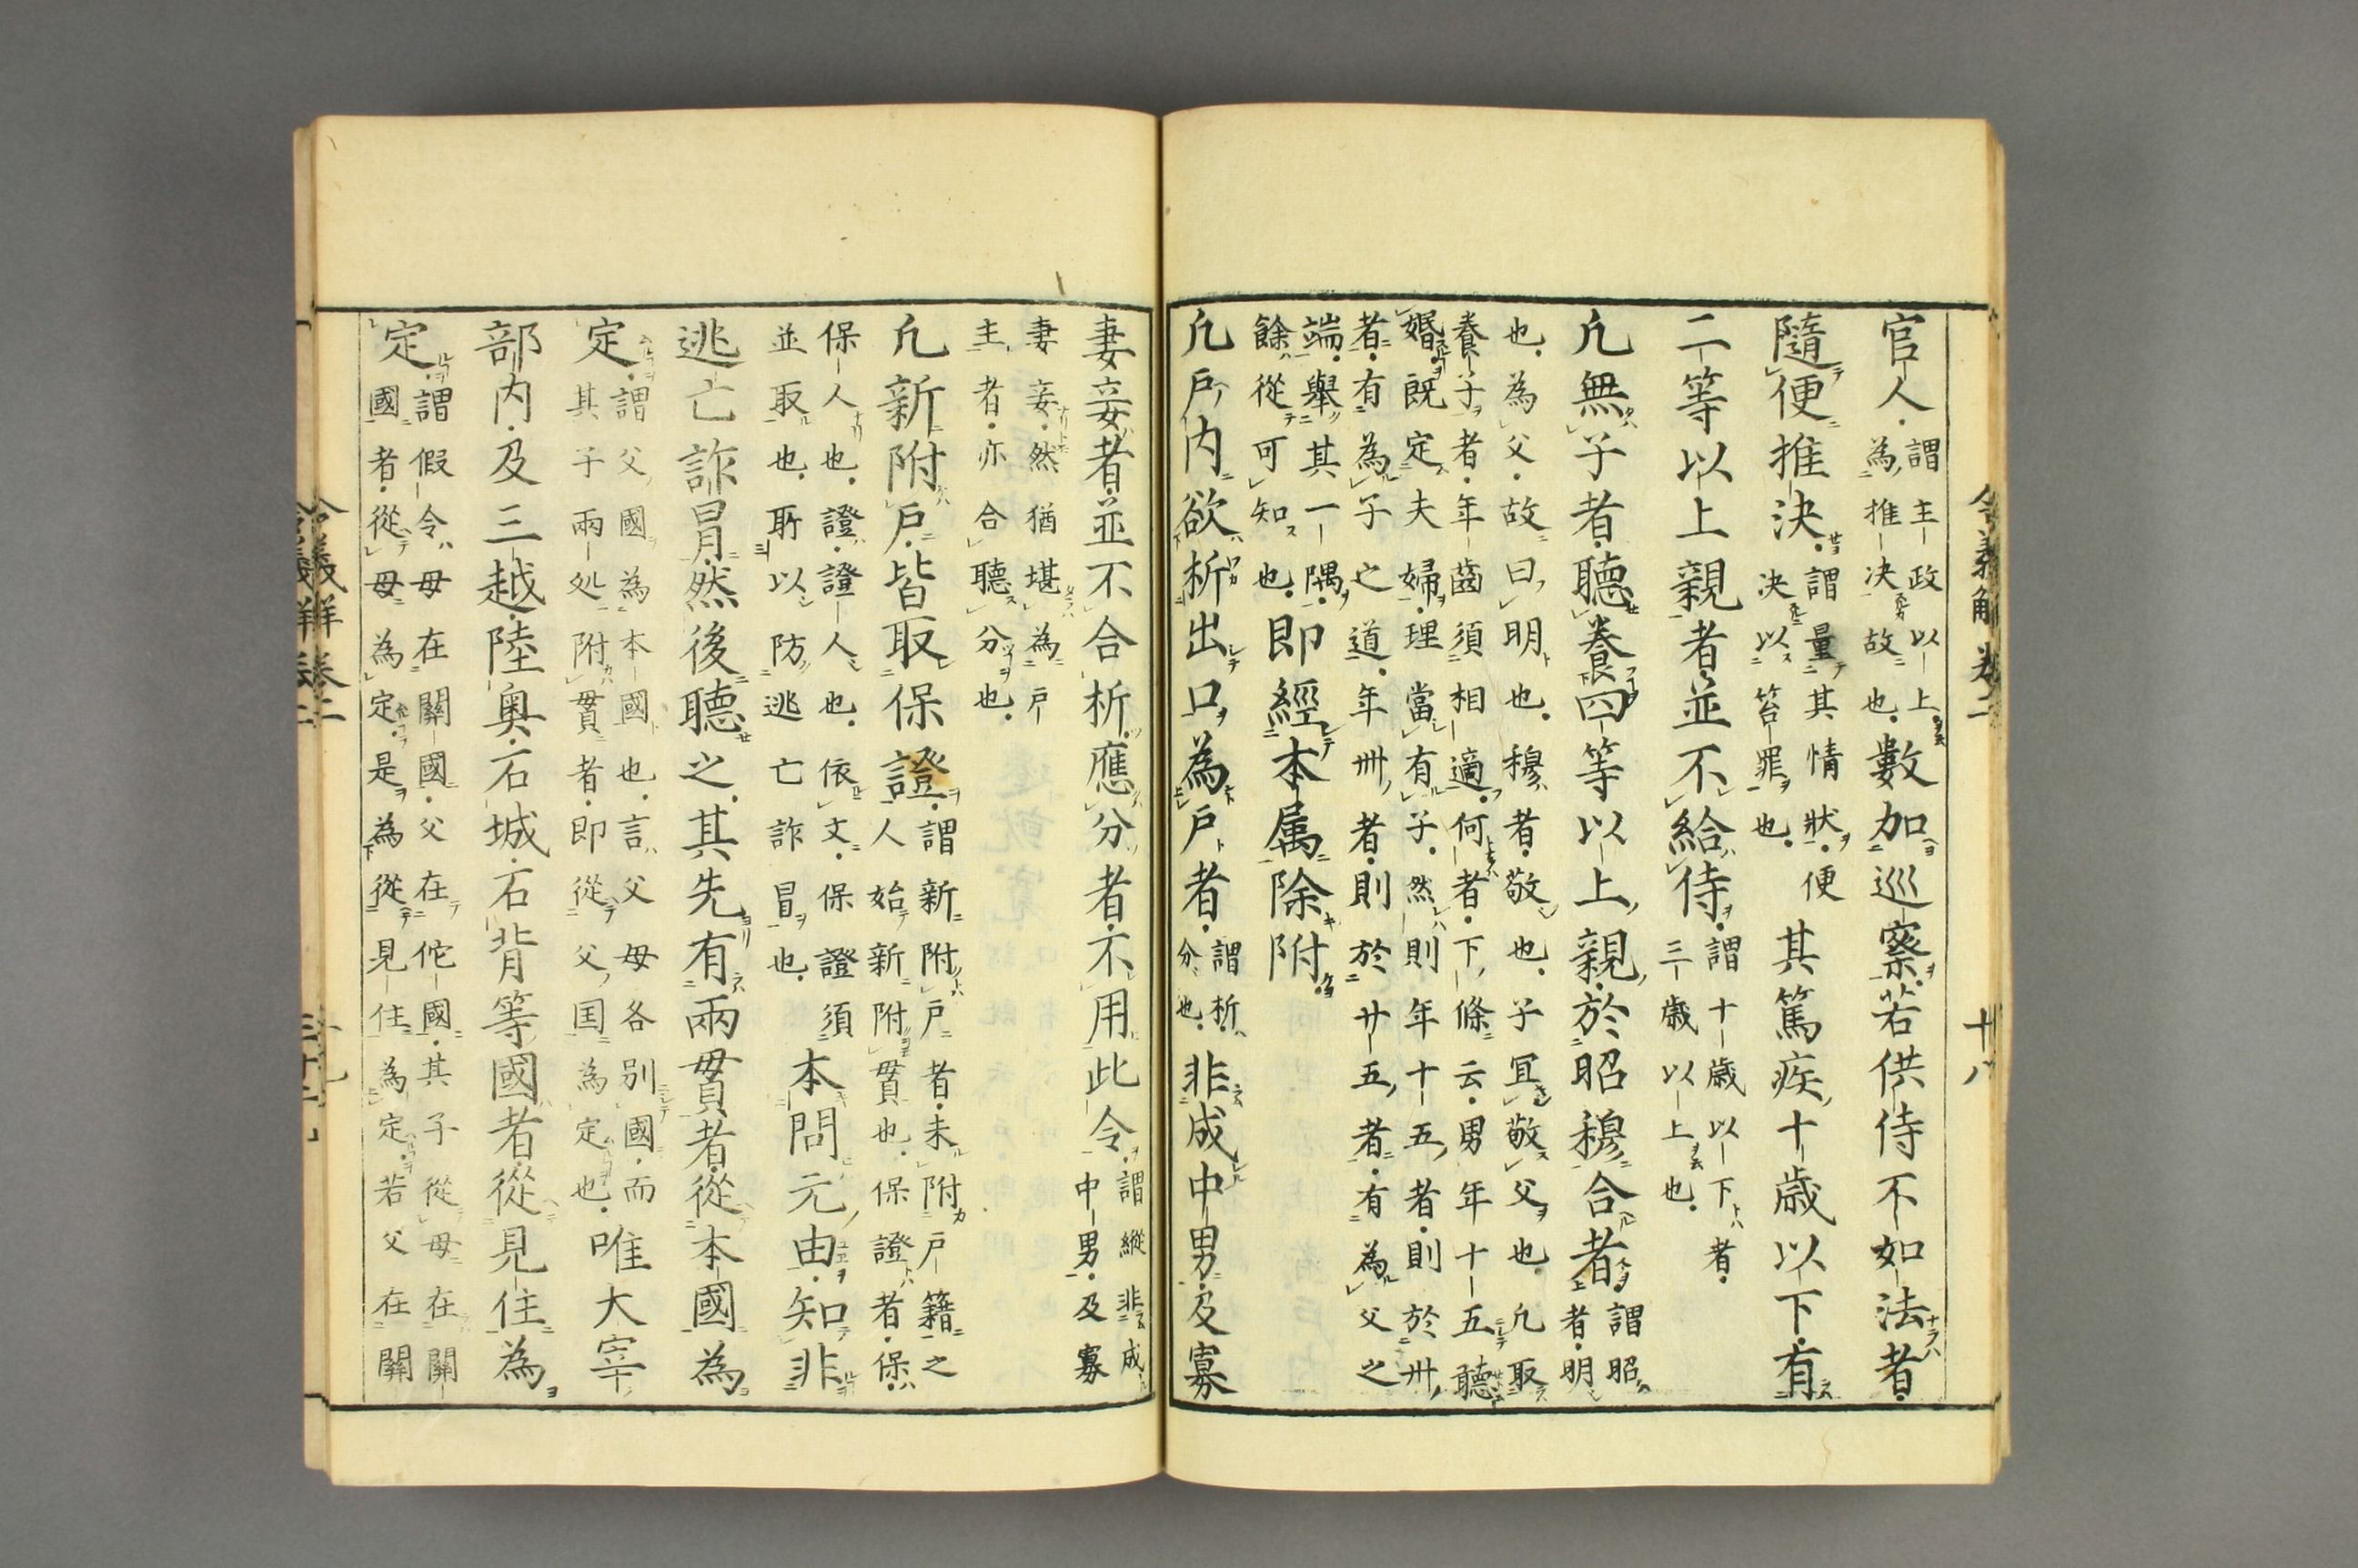 令義解卷二 十八
官人謂主政以上為推決故也數加巡察若供侍不如法者
隨便推決謂量其情狀便決以笞罪也其篤疾十歳以下有
二等以上親者並不給侍謂十歳以下者三歳以上也
凢無子者聽養四等以上親於昭穆合者謂昭者明
也為父故曰明也穆者敬也子冝敬父也凢取
養子者年齒須相適何者下條云男年十五聽
婚既定夫婦理當有子然則年十五者則於卅
者有為子之道年卅者則於廿五者有為父之
端舉其一隅餘從可知也即經本属除附
凢戸内欲析出口為戸者謂析分也非成中男及寡
妻妾者並不合析應分者不用此令謂縱非成中男及寡
妻妾然猶堪為戸主者亦合聽分也
凢新附戸皆取保證謂新附戸者未附戸籍之人始新附貫也保證者保
保人也證證人也依文保證須並取也所以防逃亡詐冒也本問元由知非
逃亡詐冒然後聽之其先有兩貫者從本國為
定謂父國為本國也言父母各別國而其子兩処附貫者即從父国為定也唯大宰
部内及三越陸奥石城石背等國者從見住為
定謂假令母在關國父在佗國其子從母在關國者從母為定是為從見住為定若父在關